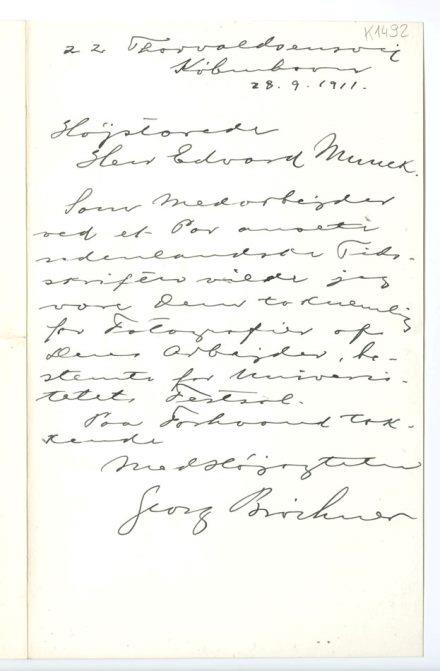 K1492
22 Thorvaldsensvej
København
28.9.1911.
Højstærede
Herr Edvard Munch.
Som Medarbejder
ved et Par ansete
udenlandske Tids-
skrifter vilde jeg
være Dem taknemlig
for Fotografier af
Deres Arbejder, be-
stemte for Universi-
tetets Festsal.
Paa Forhaand tak-
kende
Med Højagtelse
Georg Bröchner